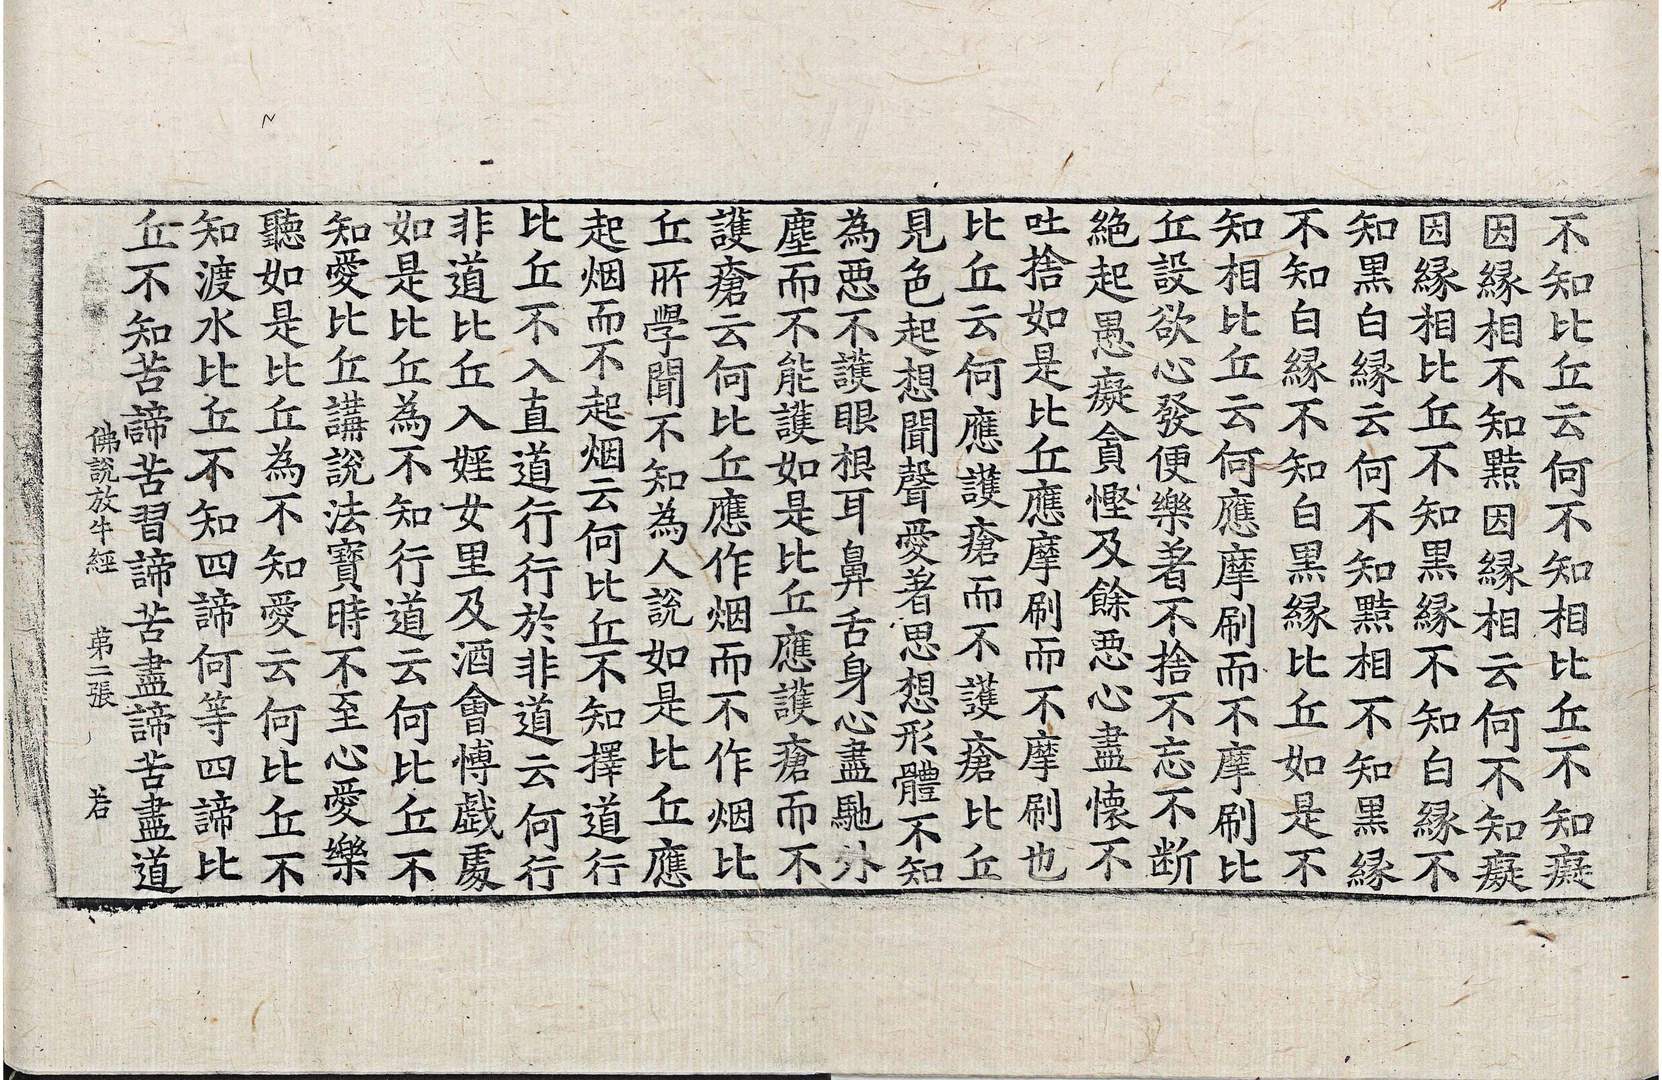 不知比丘云何不知相比丘不知癡
因緣相不知黠因緣相云何不知癡
因緣相比丘不知黒緣不知白緣不
知黒白緣云何不知黠相不知黒緣
不知白緣不知白黒緣比丘如是不
知相比丘云何應摩刷而不摩刷比
丘設欲心發便樂著不捨不忘不断
絕起愚癡貪慳及餘惡心盡懷不
吐捨如是比丘應摩刷而不摩刷也
比丘云何應護瘡而不護瘡比丘
見色起想聞聲愛著思想形體不知
為惡不護眼根耳鼻舌身心盡馳外
塵而不能護如是比丘應護瘡而不
護瘡云何比丘應作烟而不作烟比
丘所學聞不知為人說如是比丘應
起烟而不起烟云何比丘不知擇道行
比丘不入直道行行於非道云何行
非道比丘入婬女里及酒會博戲處
如是比丘為不知行道云何比丘不
知愛比丘講說法寶時不至心愛樂
聽如是比丘為不知愛云何比丘不
知渡水比丘不知四諦何等四諦比
丘不知苦諦苦習諦苦盡諦苦盡道
佛說放牛經 第二張 若